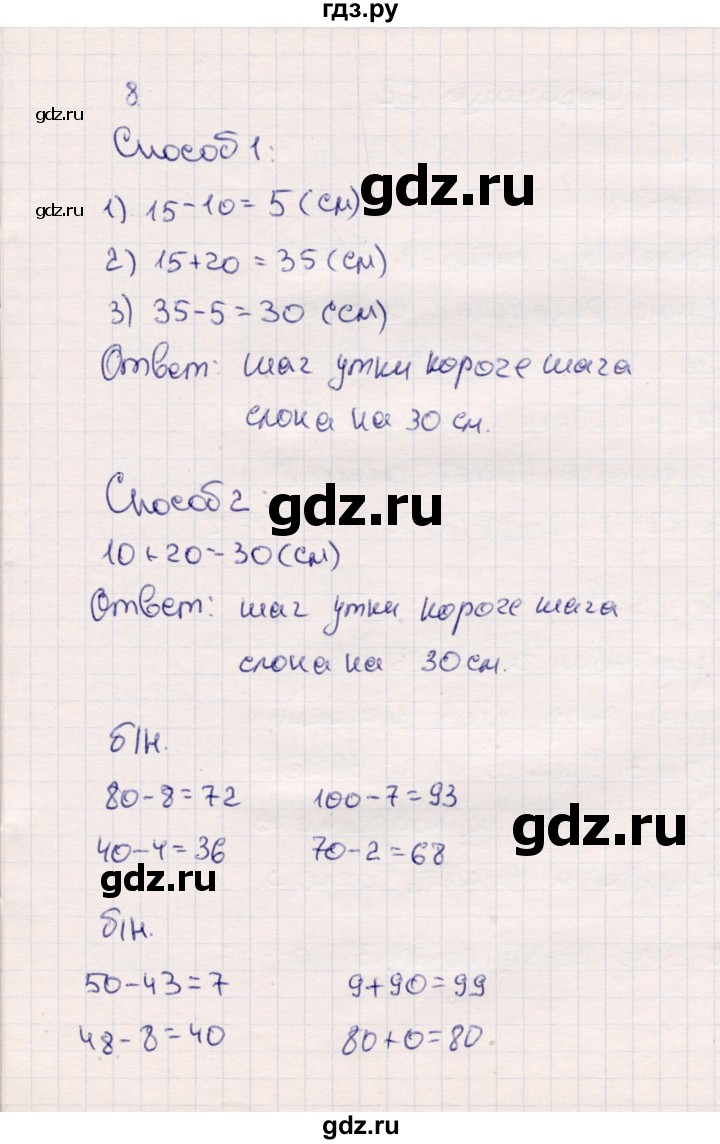 гдз.ру
8.
gdz.ru
Способ 1:
gdz.ru
gdz.ru
1) 15-10=5 (см)
2) 15+20=35 (см)
3) 35-5=30 (см)
Ответ: шаг утки короче шага
слона на 30 см.
Способ 2:
gdz.ru
10+20=30 (см)
Ответ: шаг утки короче шага
слона на 30 см.
б/н.
80-8=72 100-7=93
gdz.ru
40-4=36 70-2=68
gdz.ru
б/н.
50-43=7 9+90=99
48-8=40 80+0=80.
gdz.ru